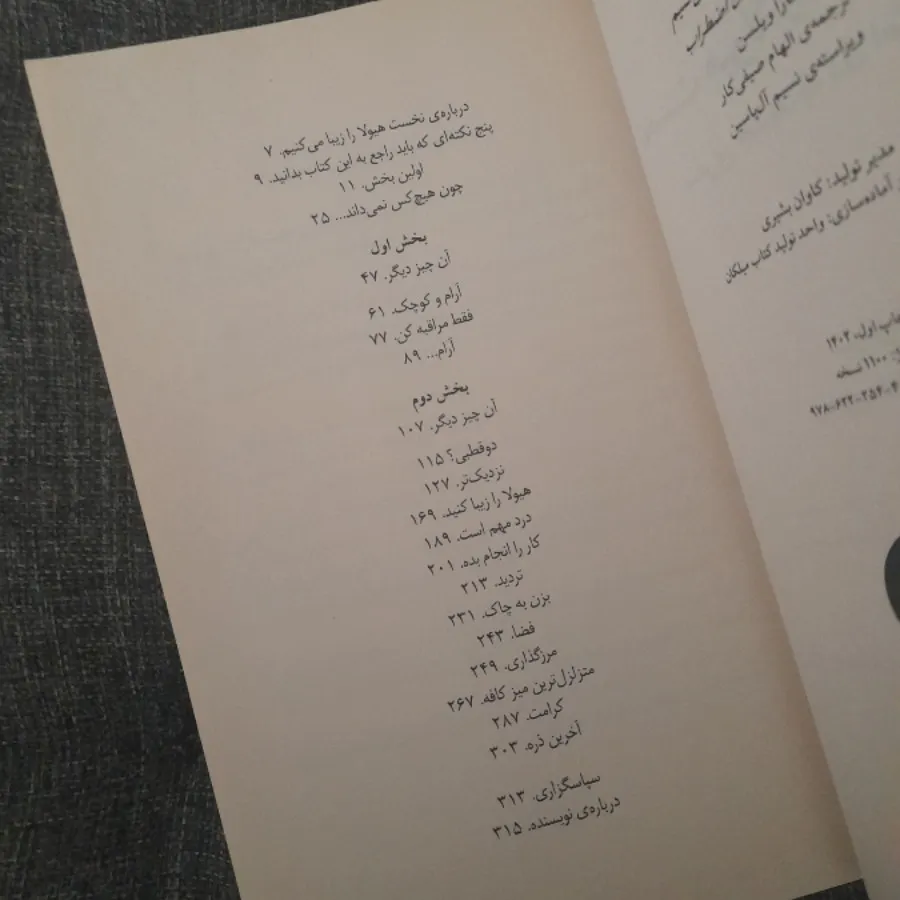 درباره‌ی نخست هیولا را زیبا می‌کنیم. ۷
پنج نکته‌ای که باید راجع به این کتاب بدانید. ۹
اولین بخش. ۱۱
چون هیچ‌کس نمی‌داند... ۲۵
بخش اول
آن چیز دیگر. ۴۷
آرام و کوچک. ۶۱
فقط مراقبه کن. ۷۷
آرام... ۸۹
بخش دوم
آن چیز دیگر. ۱۰۷
دوقطبی؟ ۱۱۵
نزدیک‌تر. ۱۲۷
هیولا را زیبا کنید. ۱۶۹
درد مهم است. ۱۸۹
کار را انجام بده. ۲۰۱
تردید. ۲۱۳
بزن به چاک. ۲۳۱
فضا. ۲۴۳
مرزگذاری. ۲۴۹
متزلزل‌ترین میز کافه. ۲۶۷
کرامت. ۲۸۷
آخرین ذره. ۳۰۳
سپاسگزاری. ۳۱۳
درباره‌ی نویسنده. ۳۱۵
اضطراب
ویلسن
ترجمه‌ی الهام صیفی‌کار
ویراسته‌ی نسیم آل‌یاسین
مدیر تولید: کاوان بشیری
آماده‌سازی: واحد تولید کتاب میلکان
چاپ اول، ۱۴۰۲
۱۱۰۰ نسخه